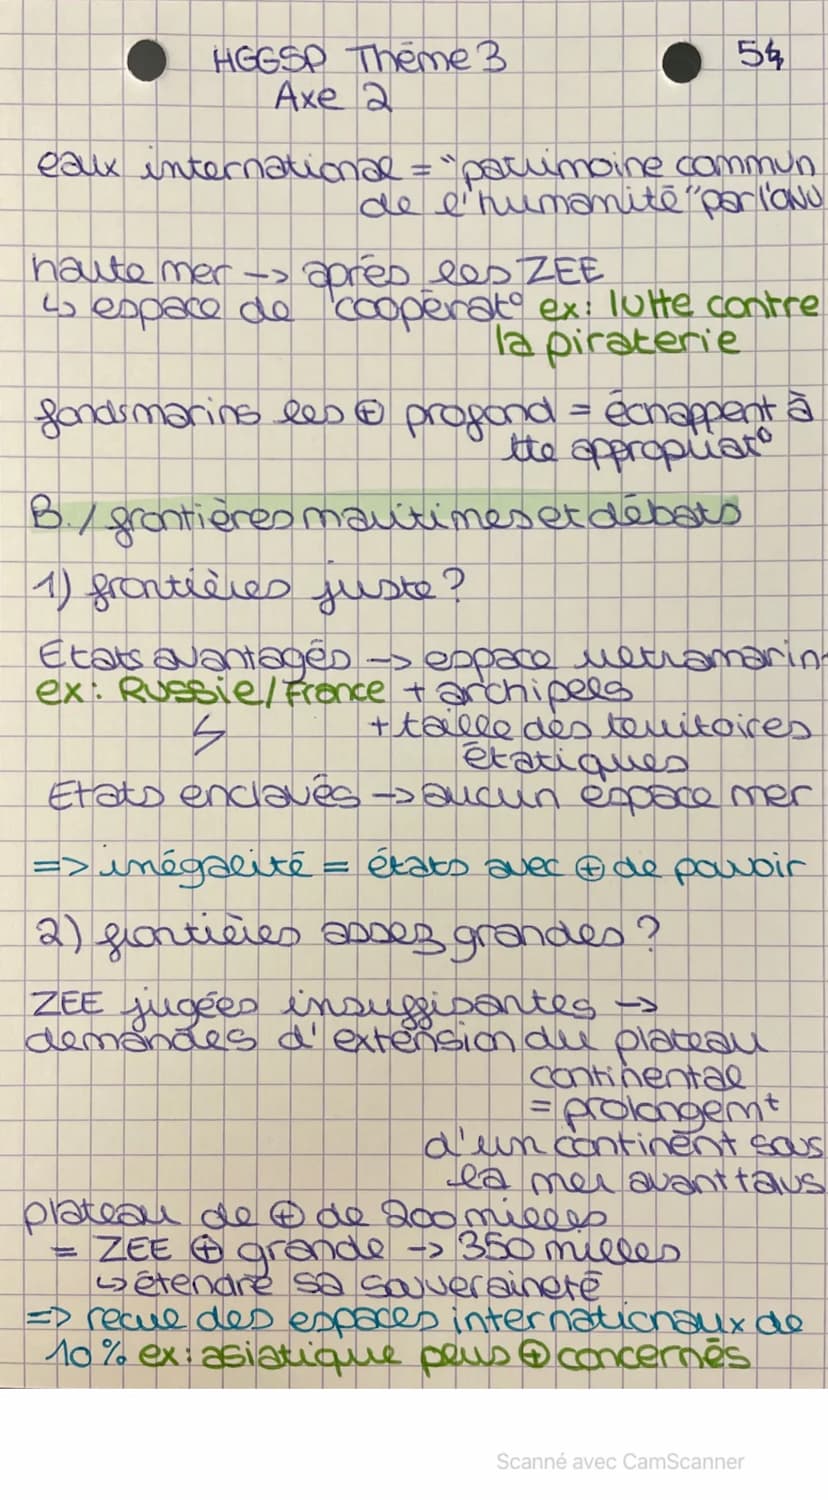 HGGSP Thème 3
54
Axe 2
eaux international = "patrimoine commun
de l'humanité" par l'ONU
haute mer -> après les ZEE
↳ espace de coopérat° ex: lutte contre
la piraterie
fonds marins les ⊕ profond = échappent à
tte appropriat°
B./ frontières maritimes et débats
1) frontières juste?
Etats avantagés -> espace ultramarin
ex: Russie/France + archipels
+ taille des territoires
étatiques
Etats enclavés -> aucun espace mer
=> inégalité = états avec ⊕ de pouvoir
2) frontières assez grandes?
ZEE jugées insuffisantes ->
demandes d'extension du plateau
continental
= prolongemt
d'un continent sous
la mer avant
plateau de ⊕ de 200 milles
= ZEE ⊕ grande -> 350 milles
↳ étendre sa souveraineté
=> recul des espaces internationaux de
10% ex: asiatique ⊕ concernés
Scanné avec CamScanner